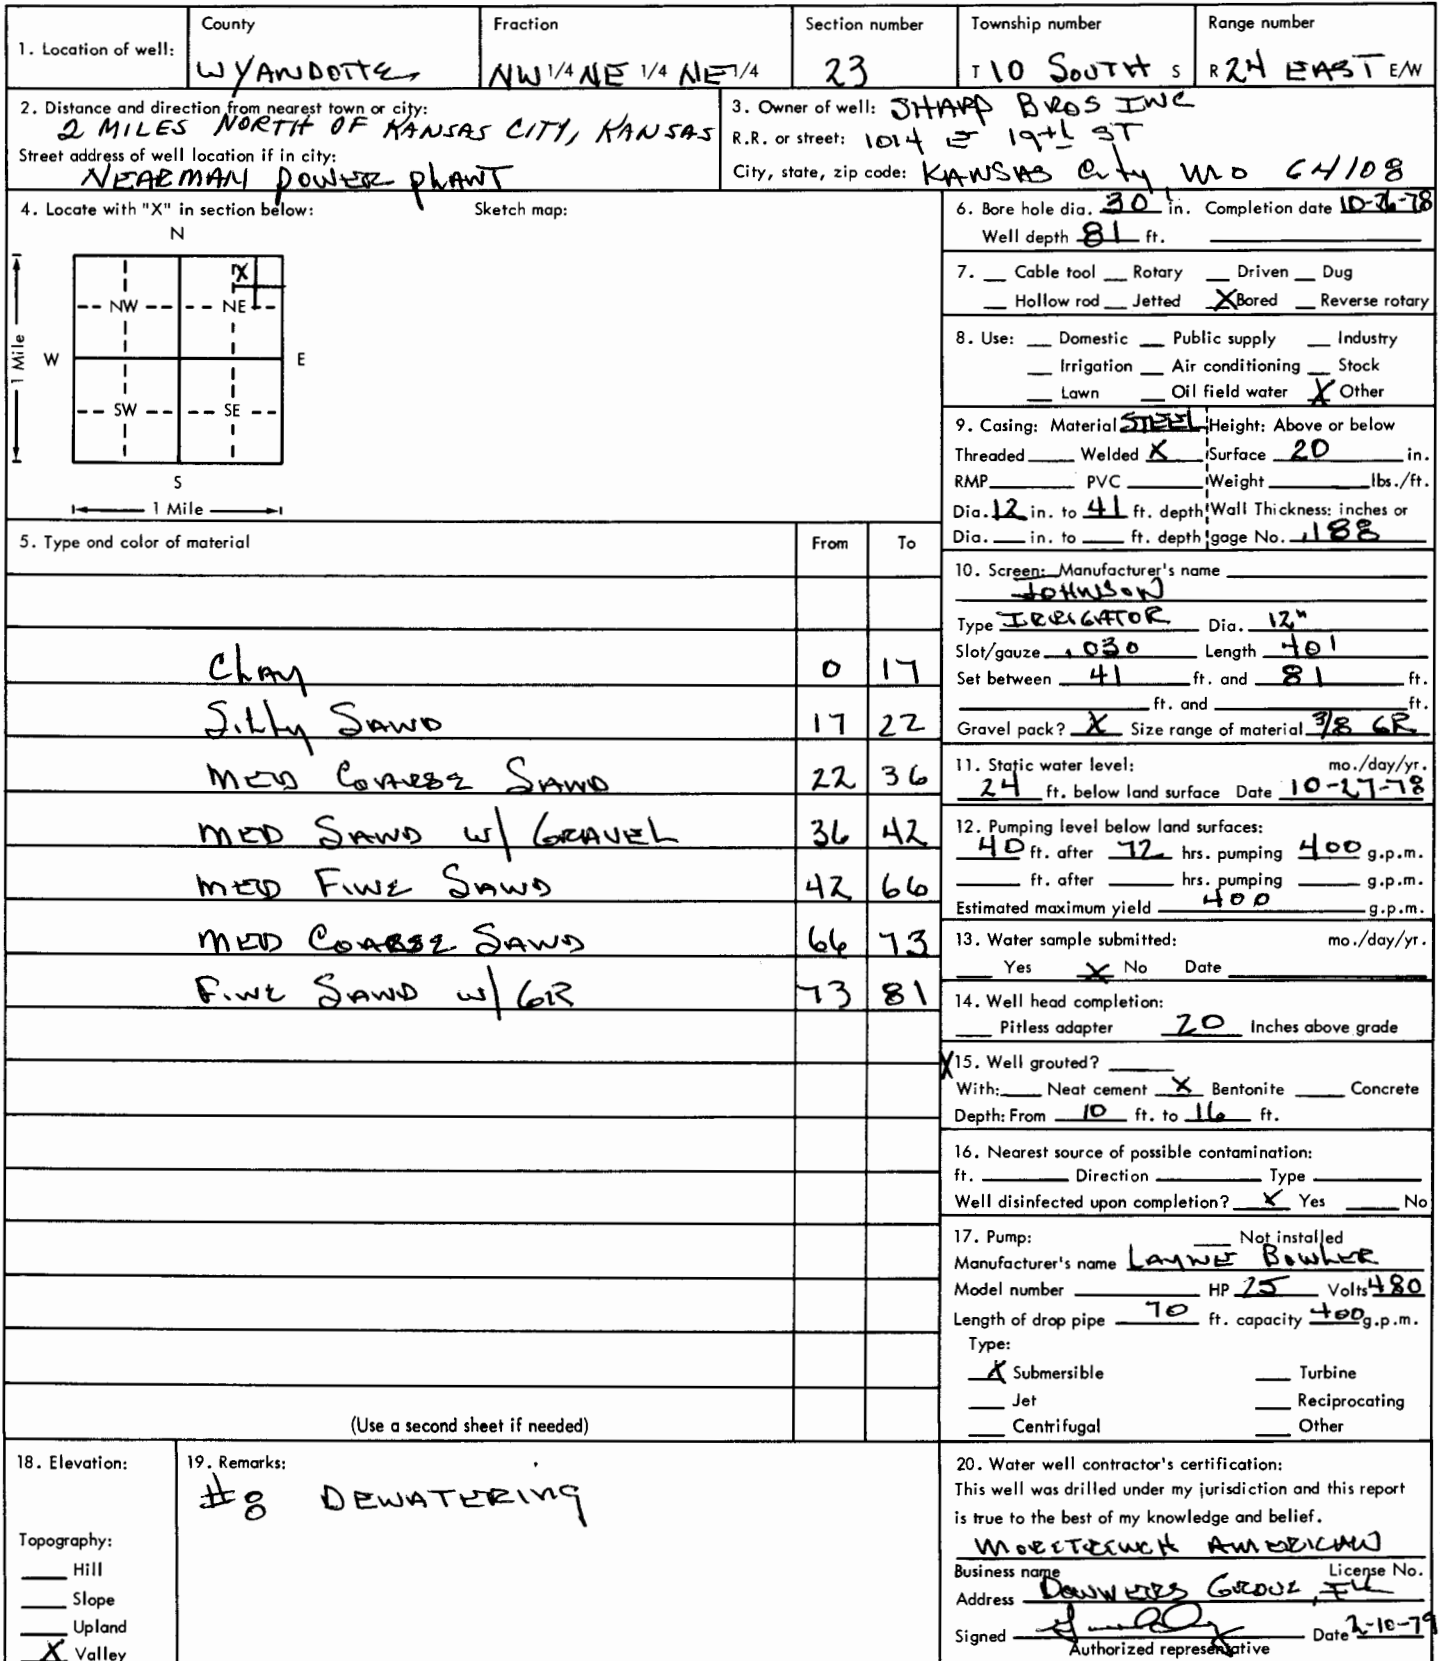 1. Location of well:
County
WYANDOTTE
Fraction
NW 1/4 NE 1/4 NE 1/4
Section number
23
Township number
T 10 SOUTH S
Range number
R 24 EAST E/W
2. Distance and direction from nearest town or city:
2 MILES NORTH OF KANSAS CITY, KANSAS
Street address of well location if in city:
NEARMAN POWER PLANT
3. Owner of well: SHARP BROS INC
R.R. or street: 1014 E 19th ST
City, state, zip code: KANSAS City, MO 64108
4. Locate with "X" in section below:
Sketch map:
N
X
NW NE
W E
SW SE
S
1 Mile
1 Mile
5. Type and color of material From To
Clay 0 17
Silty SAND 17 22
MED COARSE SAND 22 36
MED SAND W/ GRAVEL 36 42
MED FINE SAND 42 66
MED COARSE SAND 66 73
FINE SAND W/ GR 73 81
(Use a second sheet if needed)
6. Bore hole dia. 30 in. Completion date 10-26-78
Well depth 81 ft.
7. Cable tool Rotary Driven Dug
Hollow rod Jetted X Bored Reverse rotary
8. Use: Domestic Public supply Industry
Irrigation Air conditioning Stock
Lawn Oil field water X Other
9. Casing: Material STEEL Height: Above or below
Threaded Welded X Surface 20 in.
RMP PVC Weight lbs./ft.
Dia. 12 in. to 41 ft. depth Wall Thickness: inches or
Dia. in. to ft. depth gage No. .188
10. Screen: Manufacturer's name
JOHNSON
Type IRRIGATOR Dia. 12"
Slot/gauze .030 Length 40'
Set between 41 ft. and 81 ft.
ft. and ft.
Gravel pack? X Size range of material 3/8 GR
11. Static water level: mo./day/yr.
24 ft. below land surface Date 10-27-78
12. Pumping level below land surfaces:
40 ft. after 72 hrs. pumping 400 g.p.m.
ft. after hrs. pumping g.p.m.
Estimated maximum yield 400 g.p.m.
13. Water sample submitted: mo./day/yr.
Yes X No Date
14. Well head completion:
Pitless adapter 20 Inches above grade
X 15. Well grouted?
With: Neat cement X Bentonite Concrete
Depth: From 10 ft. to 16 ft.
16. Nearest source of possible contamination:
ft. Direction Type
Well disinfected upon completion? X Yes No
17. Pump: Not installed
Manufacturer's name LAYNE BOWLER
Model number HP 25 Volts 480
Length of drop pipe 70 ft. capacity 400 g.p.m.
Type:
X Submersible Turbine
Jet Reciprocating
Centrifugal Other
18. Elevation:
Topography:
Hill
Slope
Upland
X Valley
19. Remarks:
#8 DEWATERING
20. Water well contractor's certification:
This well was drilled under my jurisdiction and this report
is true to the best of my knowledge and belief.
MORETRENCH AMERICAN
Business name License No.
Address DOWNERS GROVE, ILL
Signed Date 2-10-79
Authorized representative